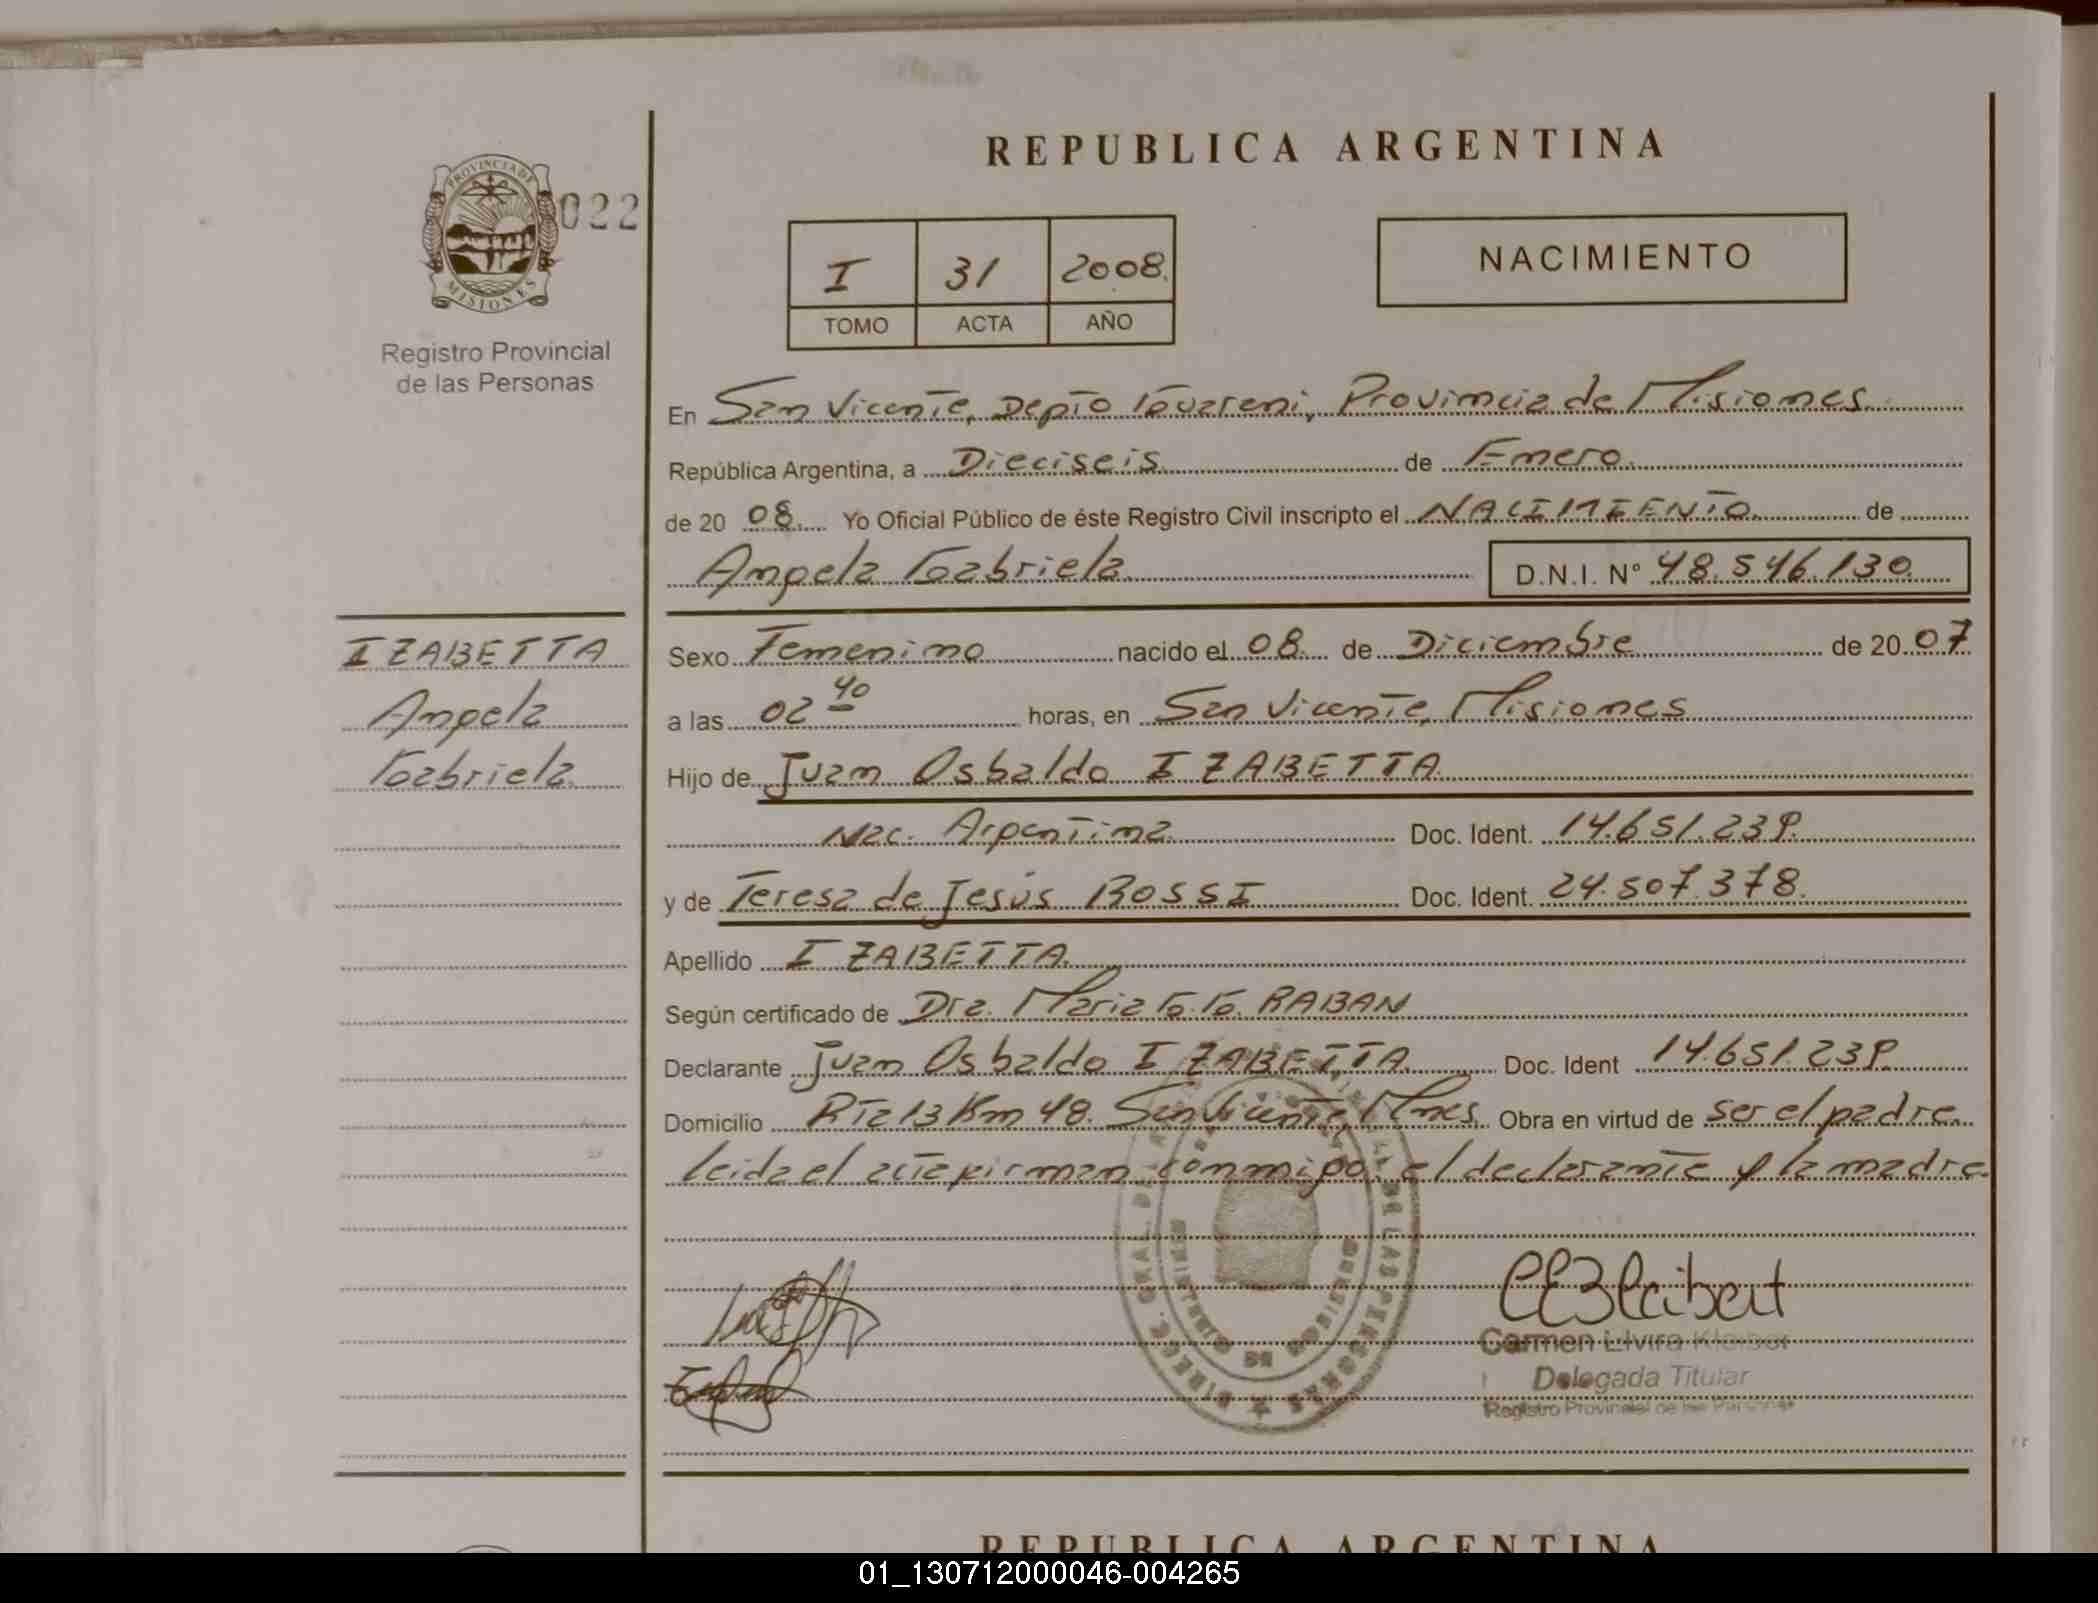 REPUBLICA ARGENTINA
PROVINCIA DE
MISIONES
022
Registro Provincial
de las Personas
I 31 2008.
TOMO ACTA AÑO
NACIMIENTO
En San Vicente, Depto Guarani, Provincia de Misiones
República Argentina, a Dieciseis de Enero
de 20 08. Yo Oficial Público de éste Registro Civil inscripto el NACIMIENTO de
Angela Gabriela D.N.I. N° 48.546.130
IZABETTA
Angela
Gabriela
Sexo Femenino nacido el 08 de Diciembre de 20 07
a las 02 40 horas, en San Vicente, Misiones
Hijo de Juan Osbaldo IZABETTA
Nac. Argentina Doc. Ident. 14.651.239.
y de Teresa de Jesús ROSSI Doc. Ident. 24.507.378.
Apellido IZABETTA
Según certificado de Dra. Maria G. G. RABAN
Declarante Juan Osbaldo IZABETTA Doc. Ident 14.651.239.
Domicilio Rta 13 Km 48. San Vicente, Mnes. Obra en virtud de ser el padre.
Leida el acta firman conmigo el declarante y la madre.
DIREC. GRAL. DE LAS PERSONAS
Carmen Elvira Kleiber
Delegada Titular
Registro Provincial de las Personas
REPUBLICA ARGENTINA
01_130712000046-004265